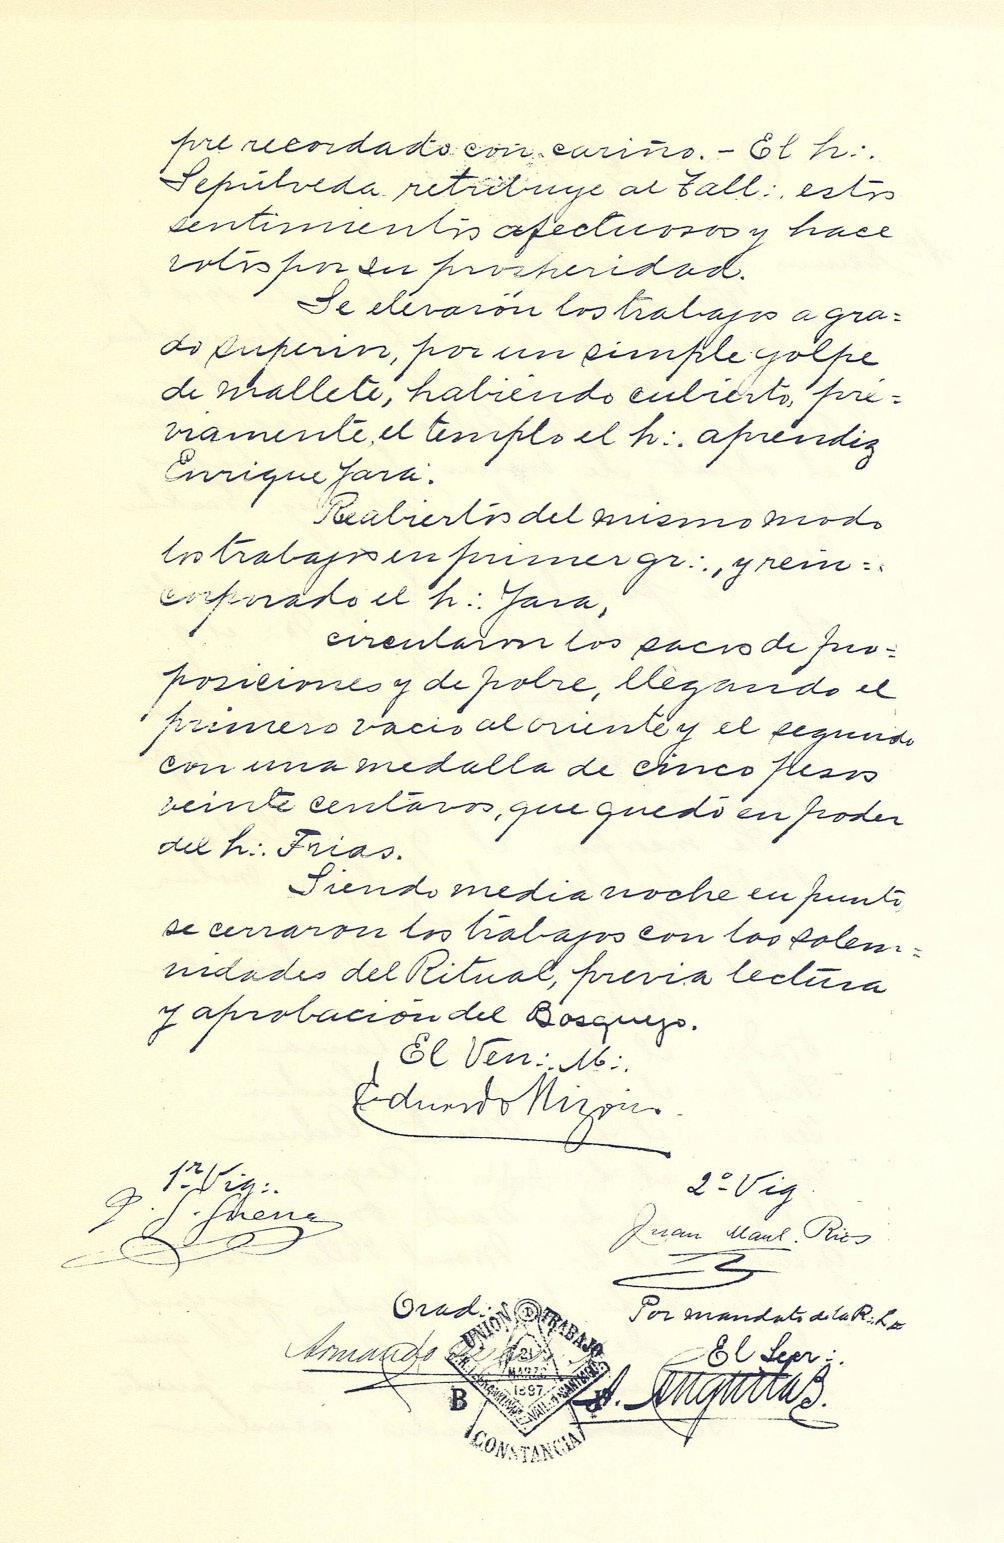 pre recordado con cariño. - El h∴
Sepúlveda retribuye al Tall∴ estos
sentimientos afectuosos y hace
votos por su prosperidad.
Se elevarón los trabajos a gra=
do superior, por un simple golpe
de mallete, habiendo cubierto, pré=
viamente, el templo el h∴ aprendiz
Enrique Jara.
Reabiertos del mismo modo
los trabajos en primer gr∴, y rein=
corporado el h∴ Jara,
circularon los sacos de pro=
posiciones y de pobre, llegando el
primero vacio al oriente y el segundo
con una medalla de cinco pesos
veinte centavos, que quedó en poder
del h∴ Frias.
Siendo media noche en punto
se cerraron los trabajos con las solem=
nidades del Ritual, previa lectura
y aprobación del Bosquejo.
El Ven∴ M∴
Eduardo
1er Vig∴
2º Vig
Juan Manl. Rios
Orad∴
Por mandato de la R∴ L
Armando
El Secr∴
A. Anguita B.
UNION TRABAJO
21
MARZO
1897
B
CONSTANCIA